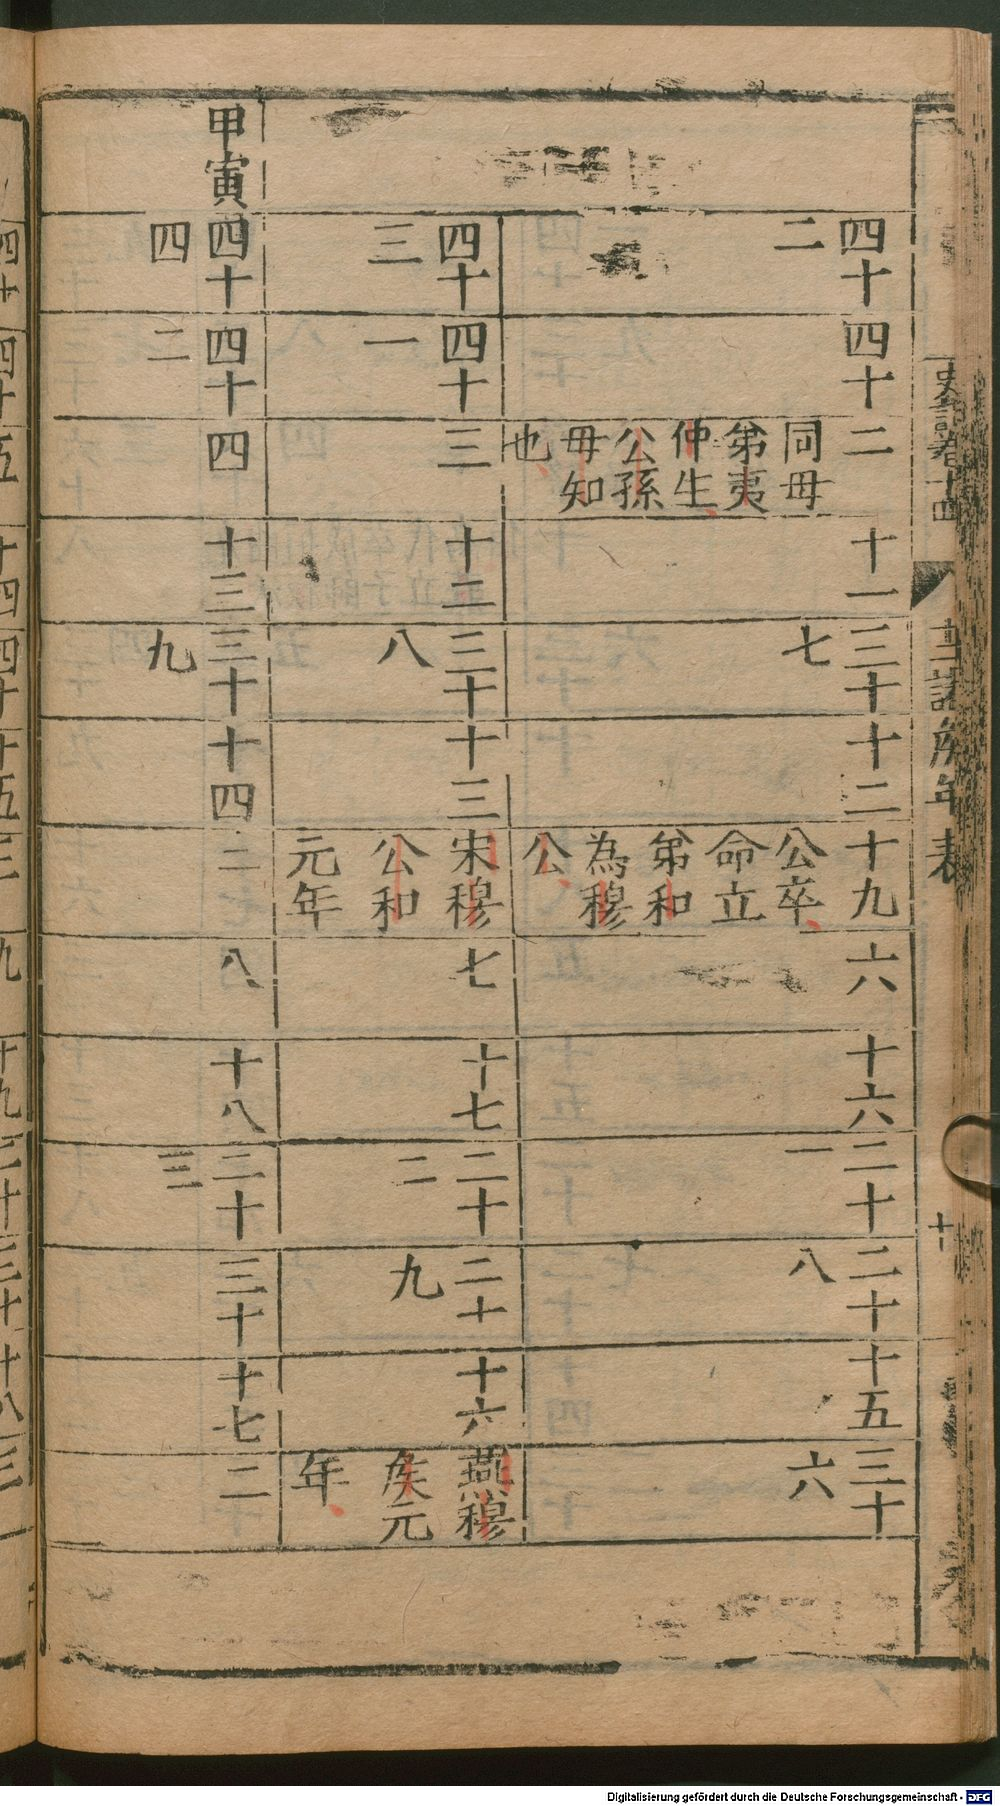 史記卷十四
十二諸矦年表
十
四十二
四十
二同母弟夷仲生公孫毋知也
十一
三十七
十二
十九公卒命立弟和為穆公
六
十六
二十一
二十八
十五
三十六
四十三
四十一
三
十二
三十八
十三
宋穆公和元年
七
十七
二十二
二十九
十六
燕穆矦元年
甲寅
四十四
四十二
四
十三
三十九
十四
二
八
十八
二十三
三十
十七
二
Digitalisierung gefördert durch die Deutsche Forschungsgemeinschaft - DFG